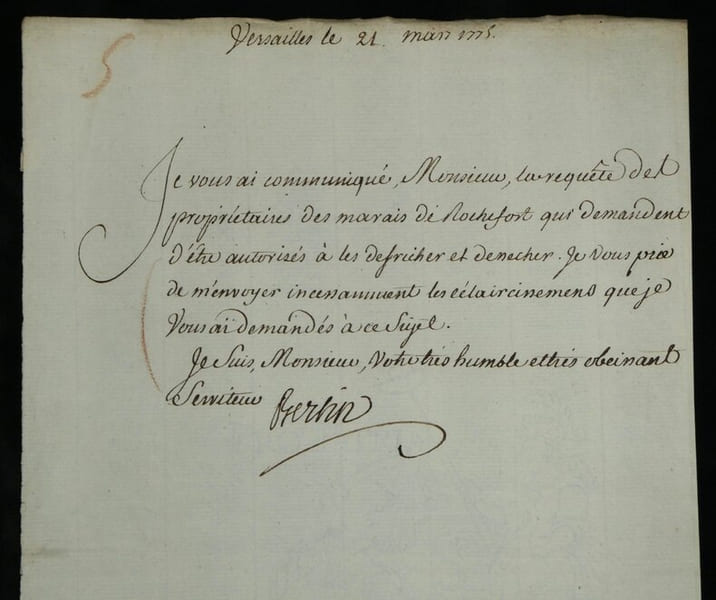 Versailles le 21. mars 1775.
5
Je vous ai communiqué, Monsieur, la requête des
propriétaires des marais de Rochefort qui demandent
d'être autorisés à les defricher et dessecher. Je vous prie
de m'envoyer incessamment les éclaircissemens que je
Vous ai demandés à ce Sujet.
Je Suis, Monsieur, Votre très humble et très obeissant
Serviteur Bertin